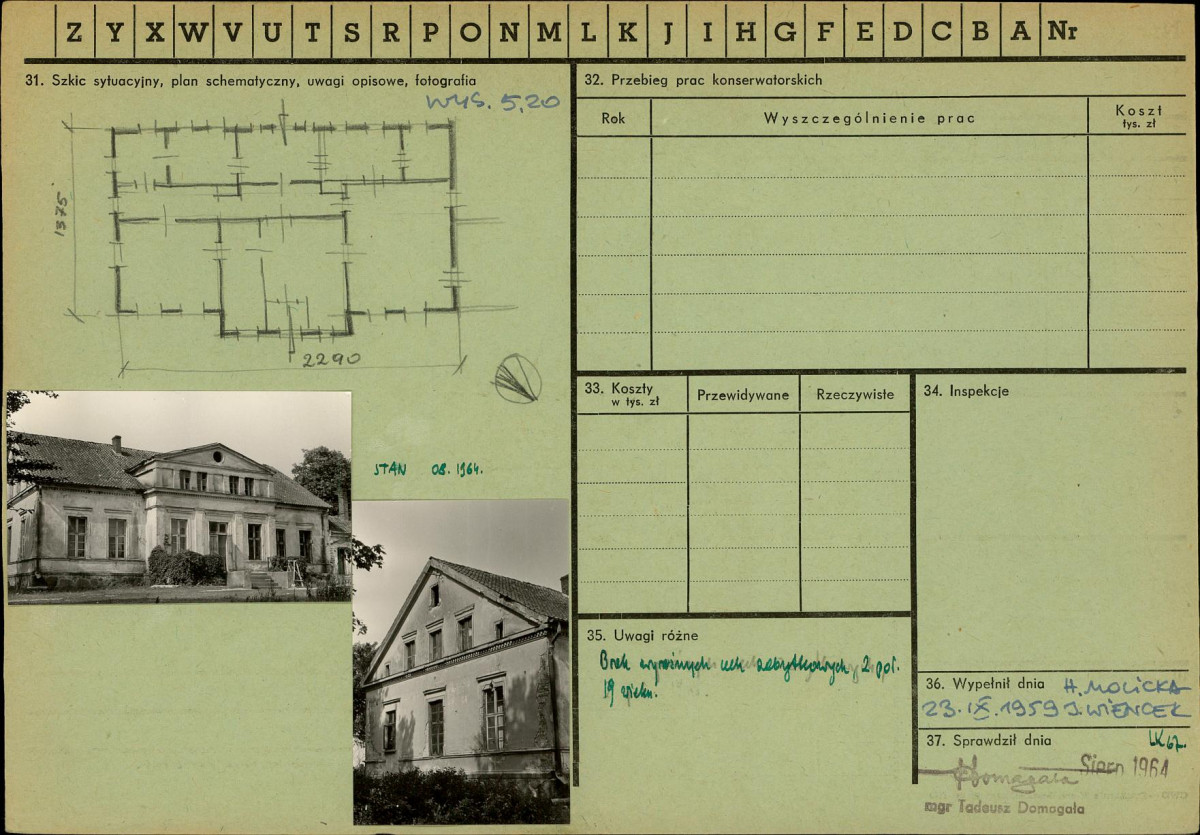 Z Y X W V U T S R P O N M L K J I H G F E D C B A Nr
31. Szkic sytuacyjny, plan schematyczny, uwagi opisowe, fotografia
WYS. 5,20
1375
2290
STAN 08. 1964.
32. Przebieg prac konserwatorskich
Rok
Wyszczególnienie prac
Koszt
tys. zł
33. Koszty
w tys. zł
Przewidywane
Rzeczywiste
34. Inspekcje
35. Uwagi różne
Brak wyraźnych cech zabytkowych, 2 poł.
19 wieku.
36. Wypełnił dnia H. MOLICKA
23. IX. 1959 J. WIENCEK
37. Sprawdził dnia
Sierp 1964
Domagała
mgr Tadeusz Domagała